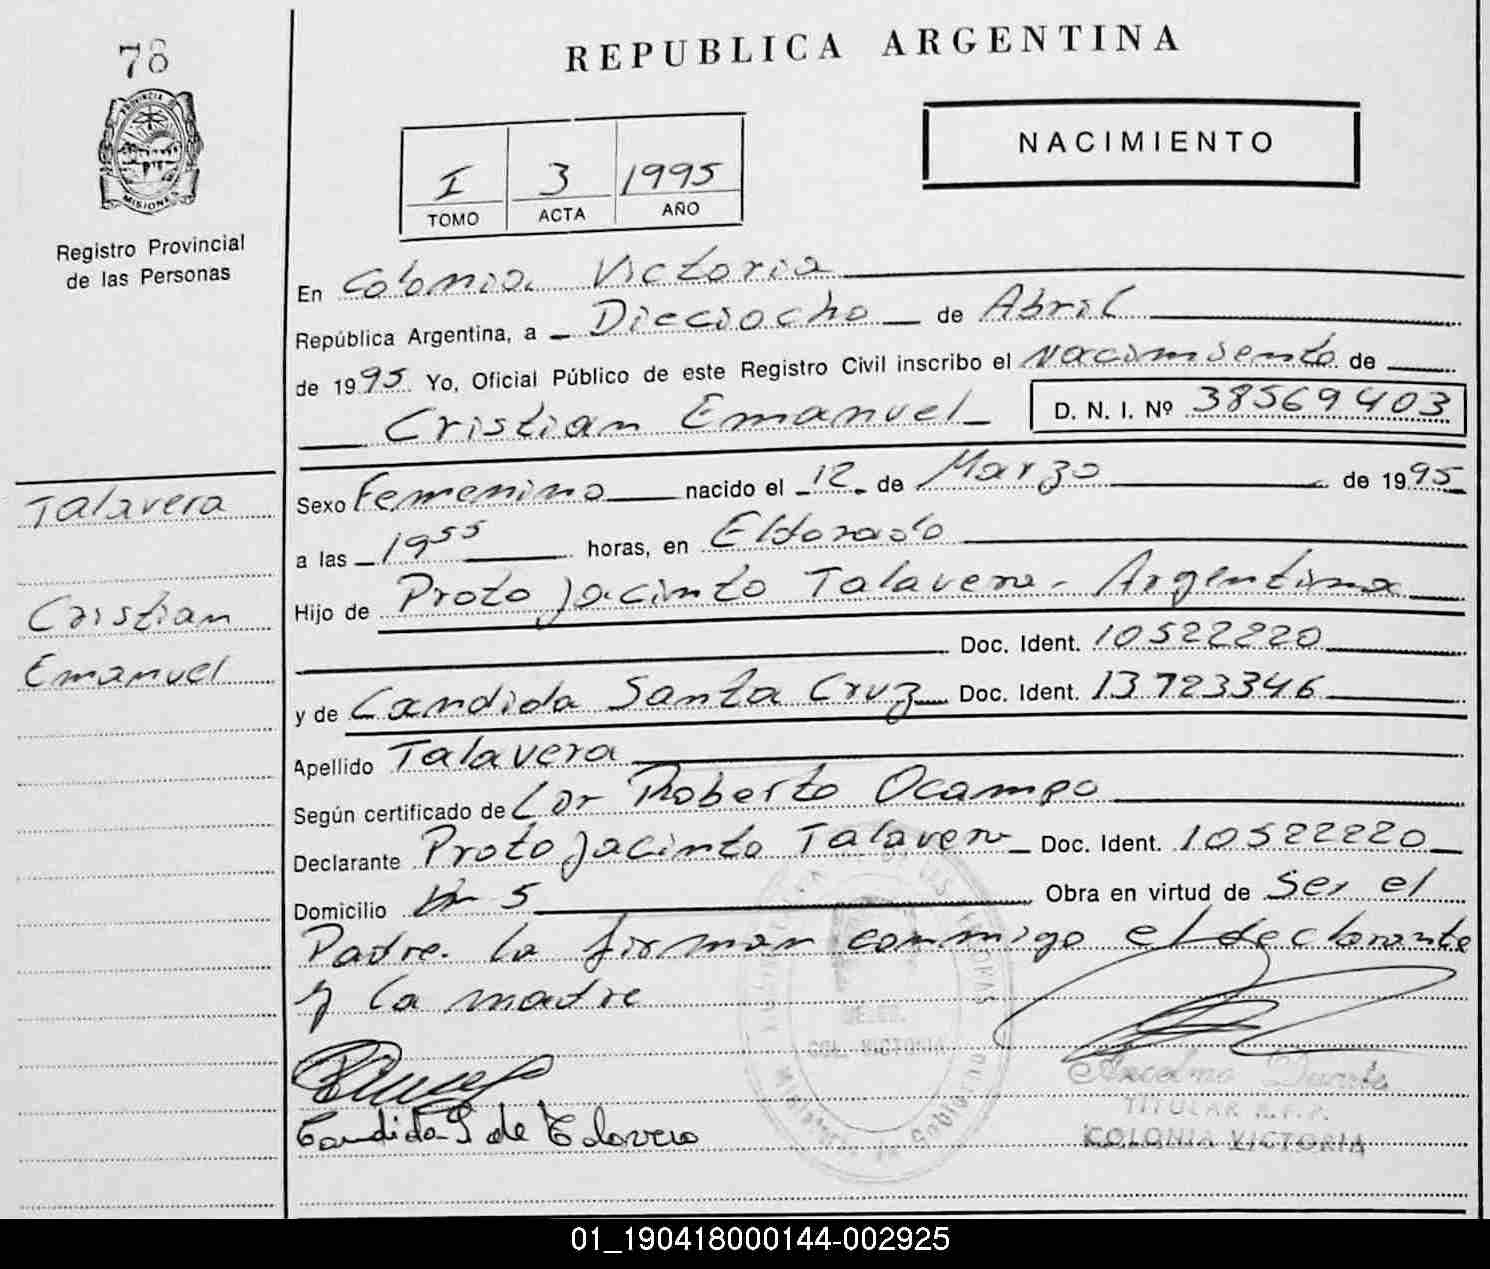 78
PROVINCIA DE
MISIONES
Registro Provincial
de las Personas
REPUBLICA ARGENTINA
I 3 1995
TOMO ACTA AÑO
NACIMIENTO
En Colonia Victoria
República Argentina, a Dieciocho de Abril
de 1995 Yo, Oficial Público de este Registro Civil inscribo el nacimiento de
Cristian Emanuel D. N. I. Nº 38569403
Talavera
Cristian
Emanuel
Sexo Femenino nacido el 12 de Marzo de 1995
a las 19 55 horas, en Eldorado
Hijo de Proto Jacinto Talavera - Argentina
Doc. Ident. 10522220
y de Candida Santa Cruz Doc. Ident. 13723346
Apellido Talavera
Según certificado de Dr Roberto Ocampo
Declarante Proto Jacinto Talavera Doc. Ident. 10522220
Domicilio Km 5 Obra en virtud de Ser el
Padre. La firman conmigo el declarante
y la madre
COL. VICTORIA
Candida S de Talavera
Anselmo Duarte
TITULAR R.P.P.
COLONIA VICTORIA
01_190418000144-002925